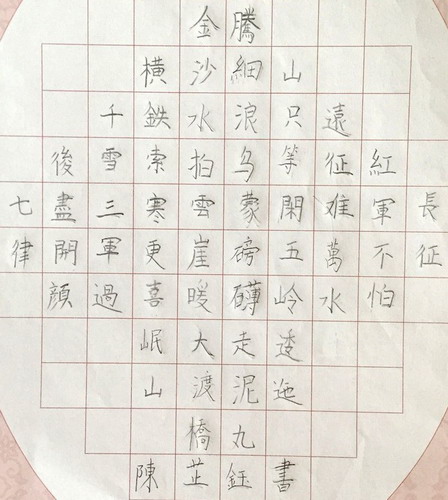 長征
紅軍不怕
遠征难萬水
山只等閑五岭逶迤
騰細浪乌蒙磅礴走泥丸
金沙水拍雲崖暖大渡橋
橫鉄索寒更喜岷山
千雪三軍過
後盡開顔
七律
陳芷鈺書